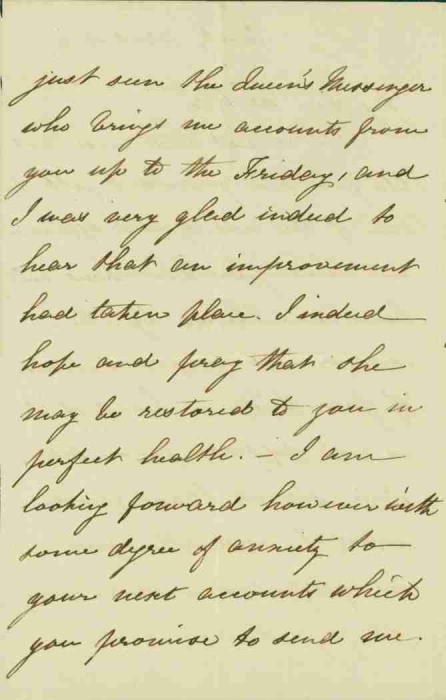 just seen the Queen's Messenger
who brings me accounts from
you up to the Friday, and
I was very glad indeed to
hear that an improvement
had taken place. I indeed
hope and pray that she
may be restored to you in
perfect health. – I am
looking forward however with
some degree of anxiety to
your next accounts which
you promise to send me.